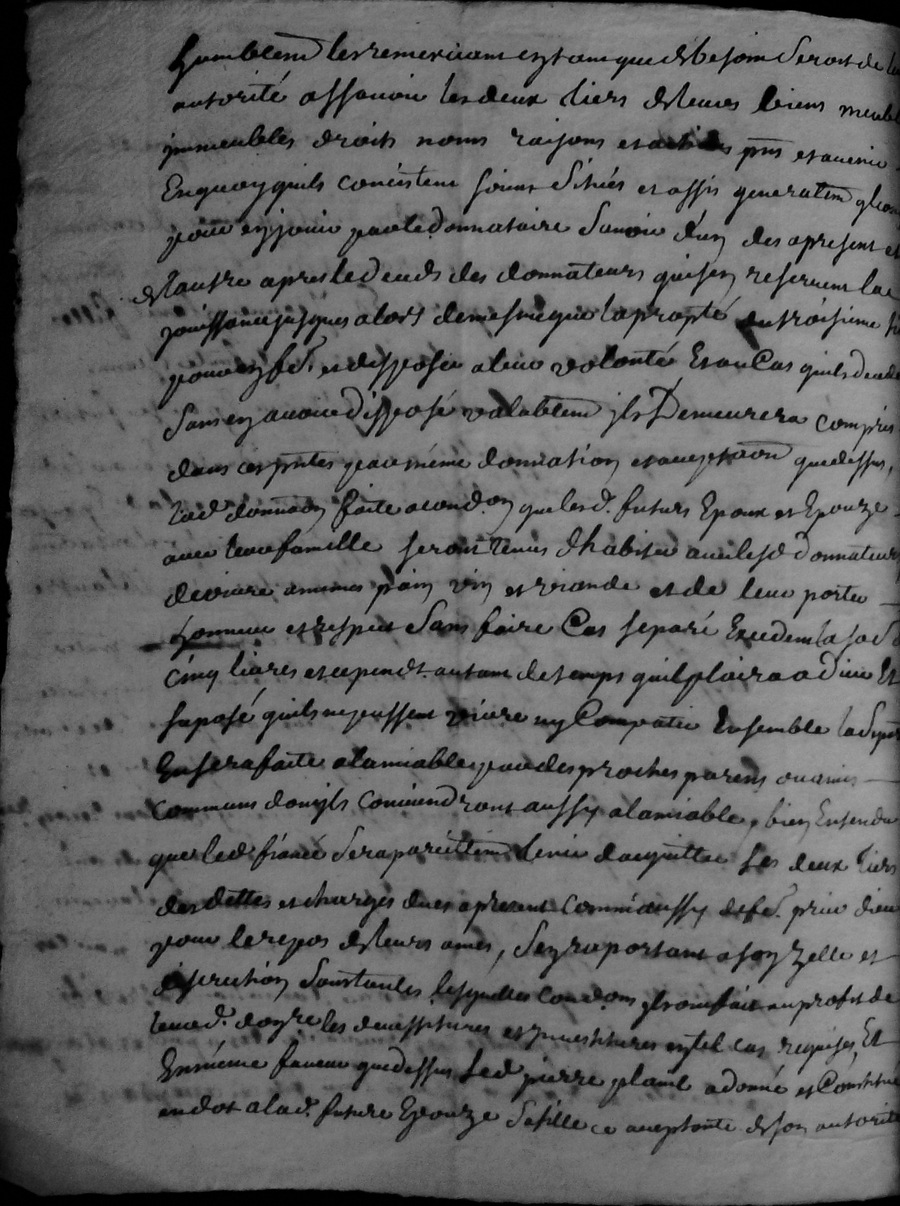 humblem̃ les remerciant en tant que de besoin seront de l
autorité assavoir les deux tiers de leurs biens meubl
immeubles droits noms raisons et actions pñts et avenir
En quoy quils concistent soient situés et assis generalem̃
pour en jouir par le donnataire savoir d'un des apresent et
de lautre apres le deceds des donnateurs qui sen reservent la
jouissance jusques alors de mesme que la propté du troisieme
pour en fe. et disposer a leur volonté Et au Cas quils decede
sans en avoir disposé valablem̃ il Demeurera compris
dans ces pñtes par meme donnation et acceptaõn que dessus,
lad. donnaõn faite a condõn que lesd. futurs Epoux et Epouze
avec leur famille seront tenus d'habiter avec lesd donnateurs
de vivre a memes pain vin et viande et de leur porter
honneur et respect sans faire Cas separé Excedent la so de
cinq livres et ce pendt. autant de temps quil plaira a dieu Et
suposé quils ne peussent vivre en Compatie Ensemble la
En sera faite alamiable par des proches parens ou amis
communs dont ils conviendront aussy alamiable, bien Entendu
que led. fiancé sera pareillem̃ tenu dacquitter les deux tiers
des dettes et charges dues a present comm'aussy de fe. prier dieu
pour le repos de leurs ames, s'en raportant a son zelle et
discretion sous toutes lesquelles condõns ils ont fait au profit de
leurd. donre. les devestitures et investitures en tel cas requises, Et
En méme faveur que dessus led pierre plani a donné et Constitue
en dot a lad. future Epouze sa fille ce acceptante de son autorité